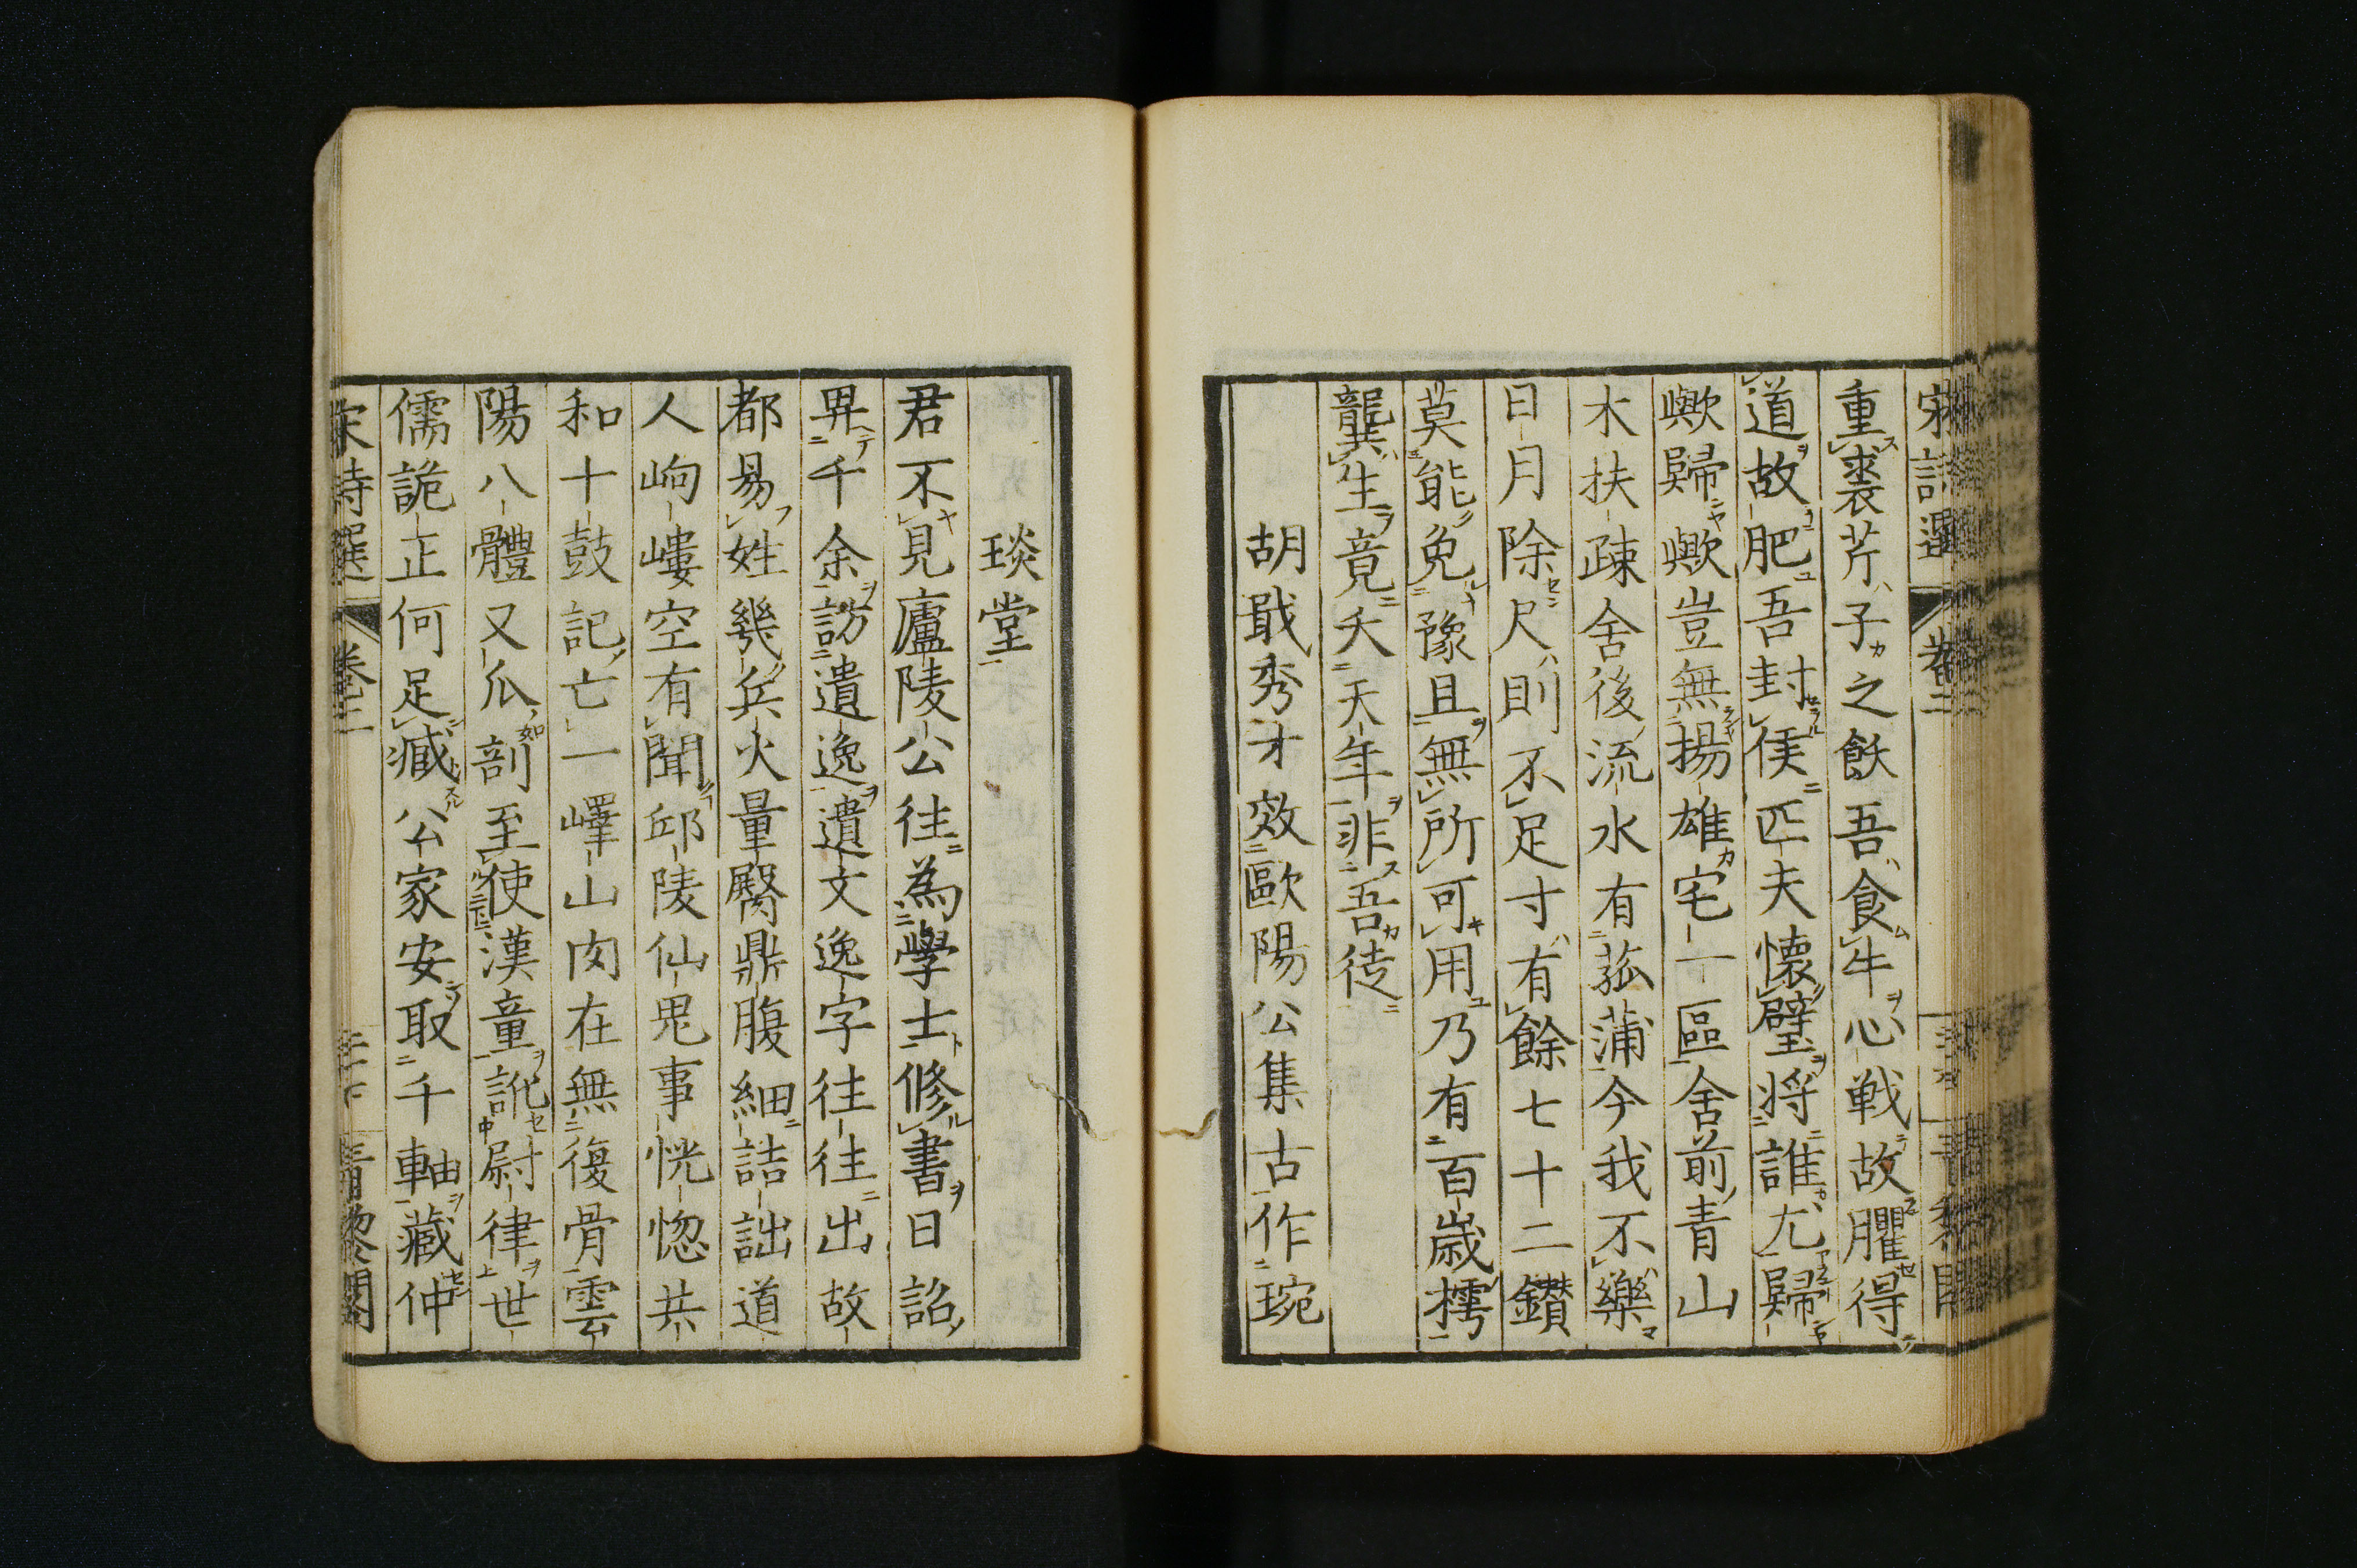 重裘芹子之飫吾食牛心戰故臞得
道故肥吾封侯匹夫懷璧將誰尤歸
歟歸歟豈無揚雄宅一區舍前青山
木扶疎舍後流水有菰蒲今我不樂
日月除尺則不足寸有餘七十二鑽
莫能免豫且無所可用乃有百歲樗
龔生竟夭天年非吾徒
胡戢秀才效歐陽公集古作琬
琰堂
君不見廬陵公往為學士修書日詔
畀千余訪遺逸遺文逸字往往出故
都易姓幾兵火量臋鼎腹細詰詘道
人岣嶁空有聞邱陵仙鬼事恍惚共
和十鼓記亡一嶧山肉在無復骨雲
陽八體又瓜剖至使漢童訛尉律世
儒詭正何足臧公家安取千軸藏仲
宋詩選 卷二